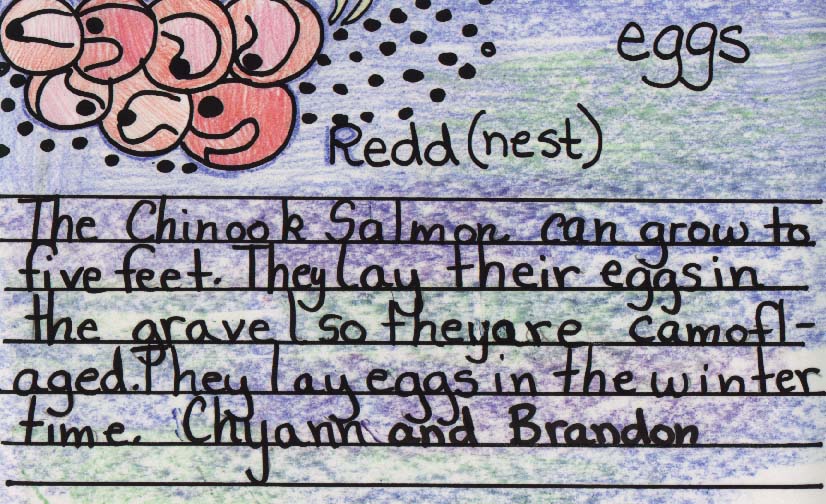 eggs
Redd (nest)
The Chinook Salmon can grow to
five feet. They lay their eggs in
the gravel so they are camofl-
aged. They lay eggs in the winter
time. Chyann and Brandon